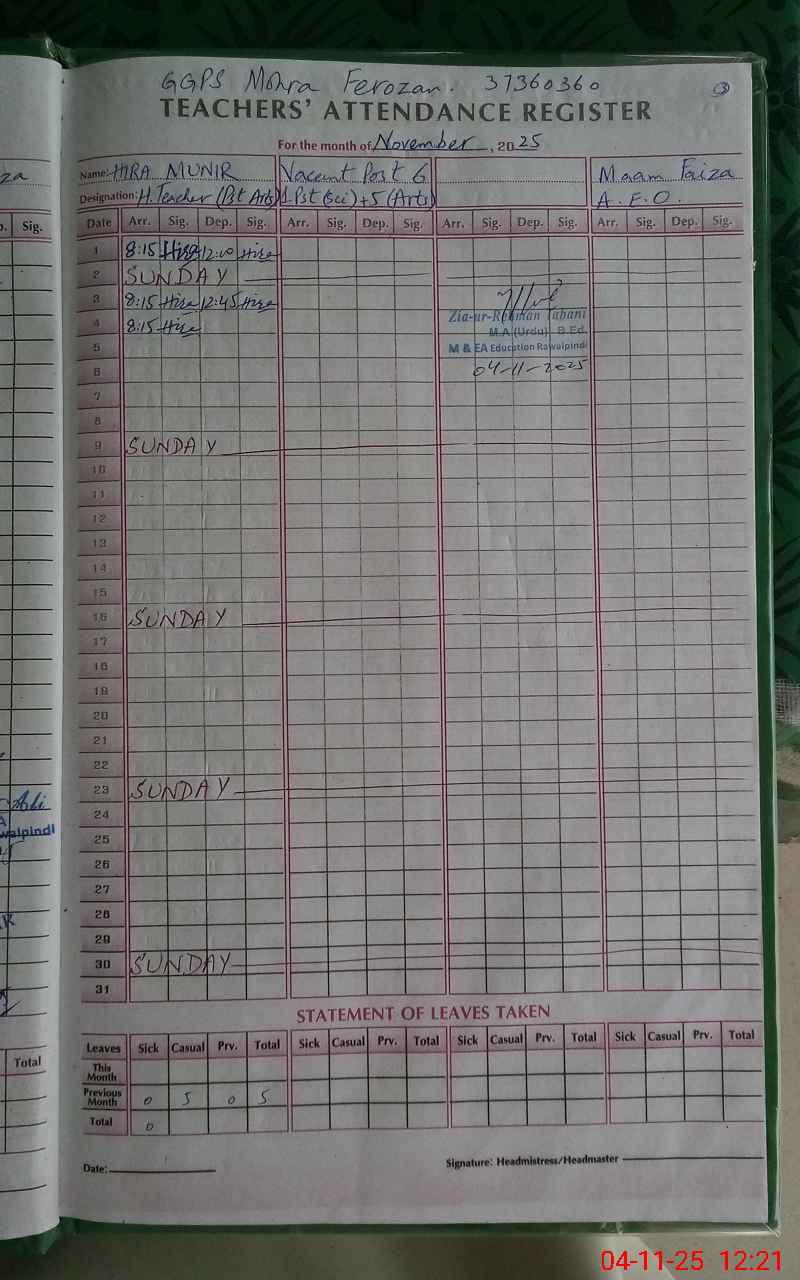 GGPS Mohra Ferozan. 37360360
3
TEACHERS' ATTENDANCE REGISTER
For the month of November, 2025
Name: HIRA MUNIR Vacent Post 6 Maam Faiza
Designation: H.Teacher (Pst Arts) 1 Pst (Sci) + 5 (Arts) A.E.O.
Date Arr. Sig. Dep. Sig. Arr. Sig. Dep. Sig. Arr. Sig. Dep. Sig. Arr. Sig. Dep. Sig.
1 8:15 Hira 12:00 Hira
2 SUNDAY
3 8:15 Hira 12:45 Hira
Zia-ur-Rehman Tabani
4 8:15 Hira
M.A (Urdu) B.Ed.
5
M & EA Education Rawalpindi
6 04-11-2025
7
8
9 SUNDAY
10
11
12
13
14
15
16 SUNDAY
17
18
19
20
21
22
23 SUNDAY
24
25
26
27
28
29
30 SUNDAY
31
STATEMENT OF LEAVES TAKEN
Leaves Sick Casual Prv. Total Sick Casual Prv. Total Sick Casual Prv. Total Sick Casual Prv. Total
This Month
Previous Month 0 5 0 5
Total 0
Date: Signature: Headmistress/Headmaster
za
Sig.
walpindi
Total
04-11-25 12:21